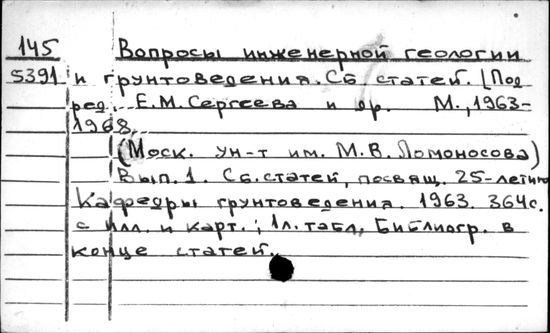 145 Вопросы инженерной геологии
5391 и грунтоведения. Сб статей. [Под
ред. Е.М.Сергеева и др. М., 1963-
1968.
(Моск. ун-т им. М.В.Ломоносова)
Вып.1. Сб.статей, посвящ. 25-летию
Кафедры грунтоведения. 1963. 364с.
с илл. и карт.; 1л.табл. Библиогр. в
конце статей.